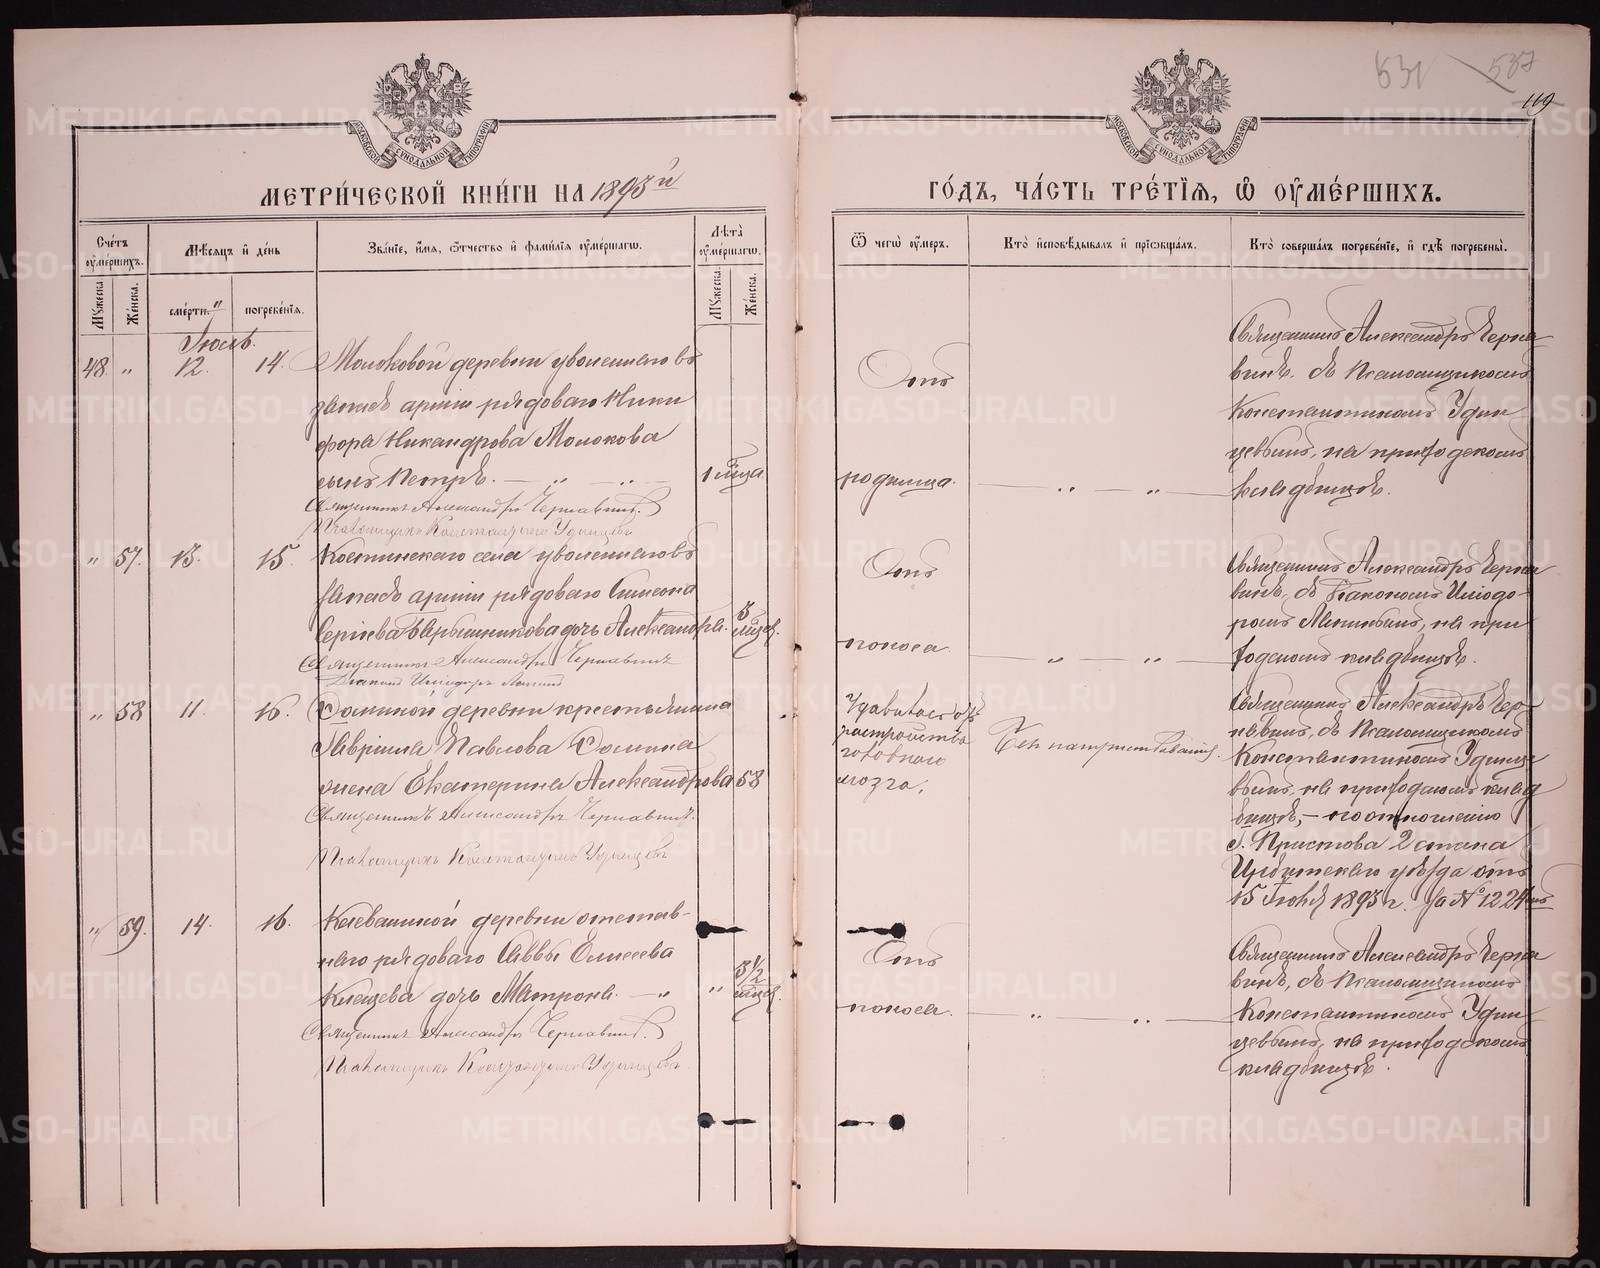 531 537
119
МЕТРИ́ЧЕСКОЙ КНИ́ГИ НА 1893 й
ГО́ДЪ, ЧА́СТЬ ТРЕ́ТІѦ, Ѡ ОУМЕ́РШИХЪ.
Сче́тъ оумершихъ.
Мѣсѧцъ и де́нь
Зва́ніе, и́мѧ, ѻ҆́тчество и фами́ліѧ оумершагѡ.
Лѣта̀ оумершагѡ.
Мꙋжеска.
Же́нска.
сме́рти.
погребе́нїѧ.
Мꙋжеска.
Же́нска.
Ѿ чегѡ̀ оумеръ.
Кто̀ исповѣдывалъ и прїѡбща́лъ.
Кто̀ соверша́лъ погребе́нїе, и гдѣ̀ погребены̀.
Іюль.
48. " 12. 14. Молоковой деревни уволеннаго въ
запасъ арміи рядоваго Ники
фора Никандрова Молокова
сынъ Петръ. — " — " — 1 мѣсца.
Священникъ Александръ Чернавинъ.
Псаломщикъ Константинъ Удинцевъ
Отъ
родимца.
— " — " —
Священникъ Александръ Черна
винъ. съ Псаломщикомъ
Константиномъ Удин
цевымъ, на приходскомъ
кладбищѣ.
" 57. 13. 15. Костинскаго села уволеннаго въ
запасъ арміи рядоваго Симеона
Сергіева Барышникова дочь Александра. 3 мѣсец.
Священникъ Александръ Чернавинъ
Діаконъ Исидоръ
Отъ
поноса
— " — " —
Священникъ Александръ Черна
винъ, съ Діакономъ Исидо-
ромъ на при
ходскомъ кладбищѣ.
" 58 11. 16. деревни крестьянина
Гавріила Павлова
жена Екатерина Александрова 58
Священникъ Александръ Чернавинъ.
Псаломщикъ Константинъ Удинцевъ
Удавилась отъ
разстройства
головнаго
мозга.
Без напутствованія.
Священникъ Александръ Чер-
навинъ, съ Псаломщикомъ
Константиномъ Удинце
вымъ, на приходскомъ клад
бищѣ, — по отношенію
г. Пристава 2 стана
Ирбитскаго уѣзда отъ
15 Іюля 1893 г. за № 1224мъ
" 59. 14. 16. Клевакиной деревни отстав-
наго рядоваго Саввы Елисеева
дочь Матрона. — " " 3 1/2 мѣсец.
Священникъ Александръ Чернавинъ.
Псаломщикъ Константинъ Удинцевъ.
Отъ
поноса.
— " — " —
Священникъ Александръ Черна
винъ, съ Псаломщикомъ
Константиномъ Удин
цевымъ, на приходскомъ
кладбищѣ.
METRIKI.GASO-URAL.RU